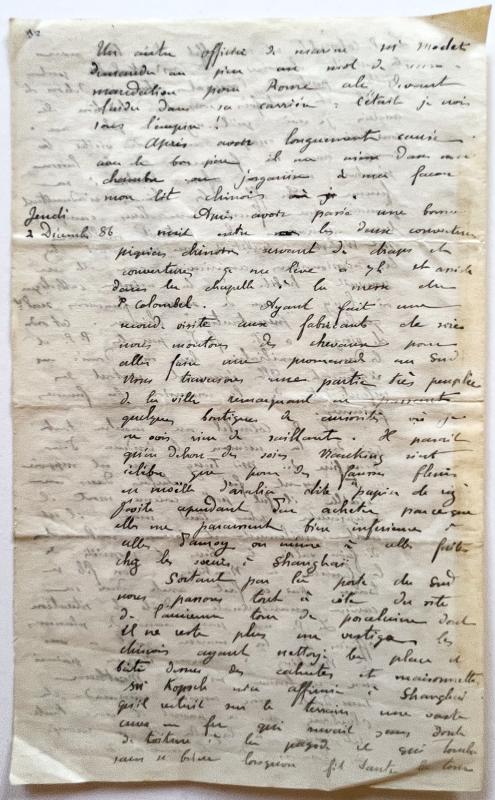 82
Un autre officier de marine Mr Maolet
demanda au père un mot de recom-
mandation pour Rome afin d'avant
dans sa carrière : c'était je crois
sous l'empire !!
Après avoir longuement causé
avec le bon père il me mène dans ma
chambre où j'organise à ma façon
mon lit chinois
Jeudi
2 Décembre 86
Après avoir passé une bonne
nuit entre les deux couvertures
piquées chinoises servant de draps et
couvertures je me lève à 7h et assiste
dans la chapelle à la messe du
P. Colombel. Ayant fait une
seconde visite aux fabricants de soies
nous montons des chevaux pour
aller faire une promenade au Sud.
Nous traversons une partie très peuplée
de la ville remarquant en passant
quelques boutiques de curiosités où je
ne vois rien de saillant. Il paraît
qu'en dehors des soies Nanking n'est
célèbre que pour des fausses fleurs
en moëlle d'aralia, dite papier de riz
J'évite cependant d'en acheter parce que
elles me paraissent bien inférieures à
celles d'Amoy ou même à celles faites
chez les soeurs à Shanghai
Sortant par la porte du Sud
nous passons tout à côté du site
de l'ancienne tour de porcelaine dont
il ne reste plus un vestige, les
chinois ayant nettoyé la place et
bâti dessus des cahutes et maisonnettes
Mr Kopsch m'a affirmé à Shanghai
qu'il restait sur le terrain une vaste
cuve en fer qui servait sans doute
de toiture à la pagode et qui tomba
sans se briser lorsqu'on fit sauter la tour